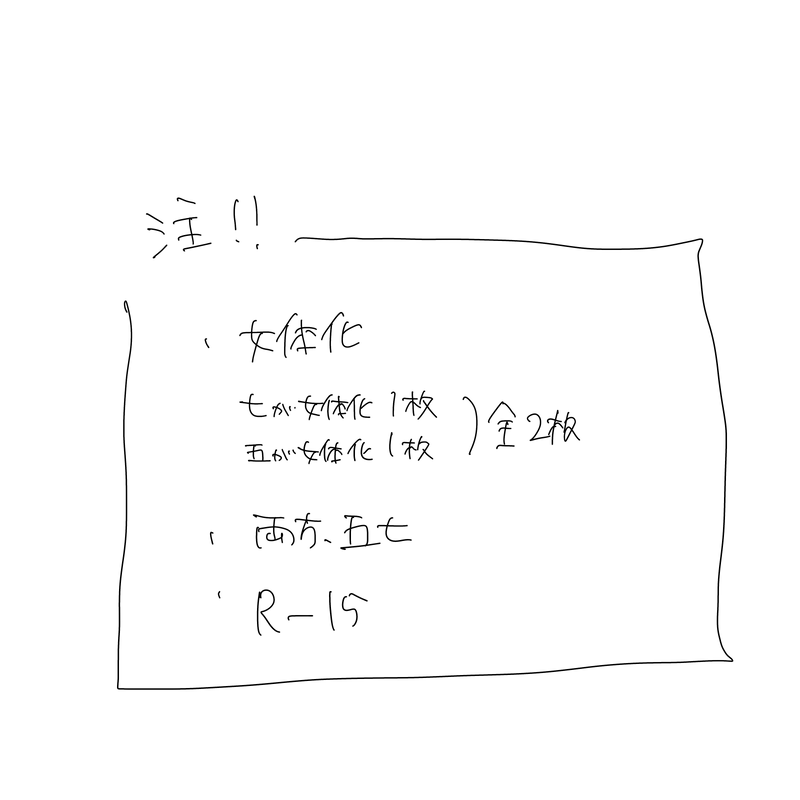 注!!
・女体化
七が女体化 1枚
五が女体化 1枚 ) 全2枚
・両方、五七
・R-15